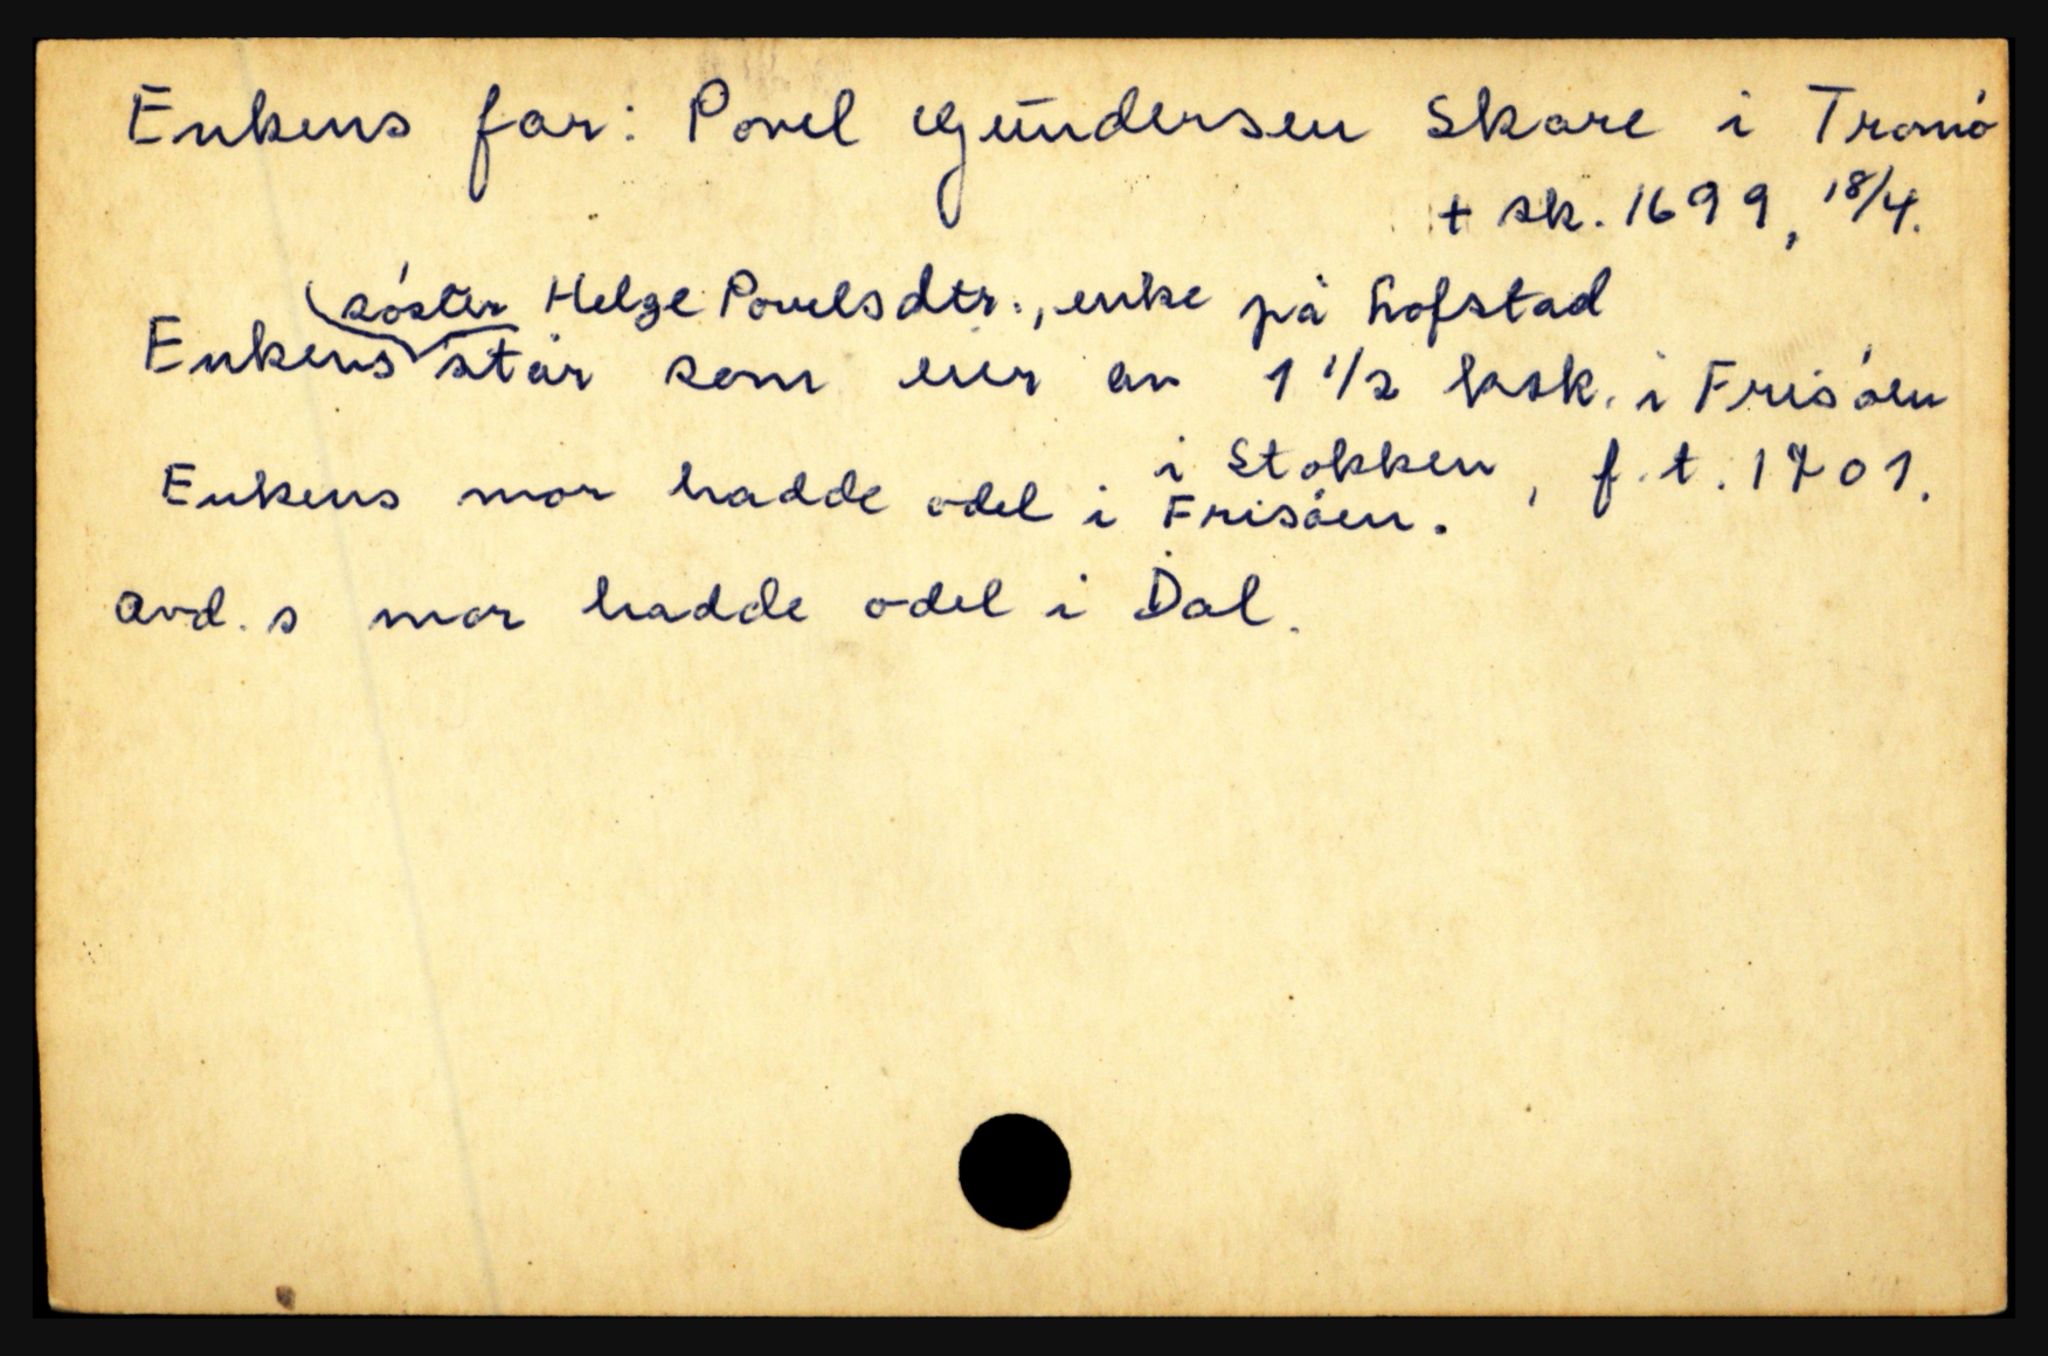 Enkens far: Povel Gundersen Skare i Tromö
+ sk. 1699, 18/4.
söster Helge Povelsdtr., enke på Lofstad
Enkens står som eier av 1 1/2 ksk. i Frisöen
i Stokken, f.t. 1701.
Enkens mor hadde odel i Frisöen.
avd.s mor hadde odel i Dal.